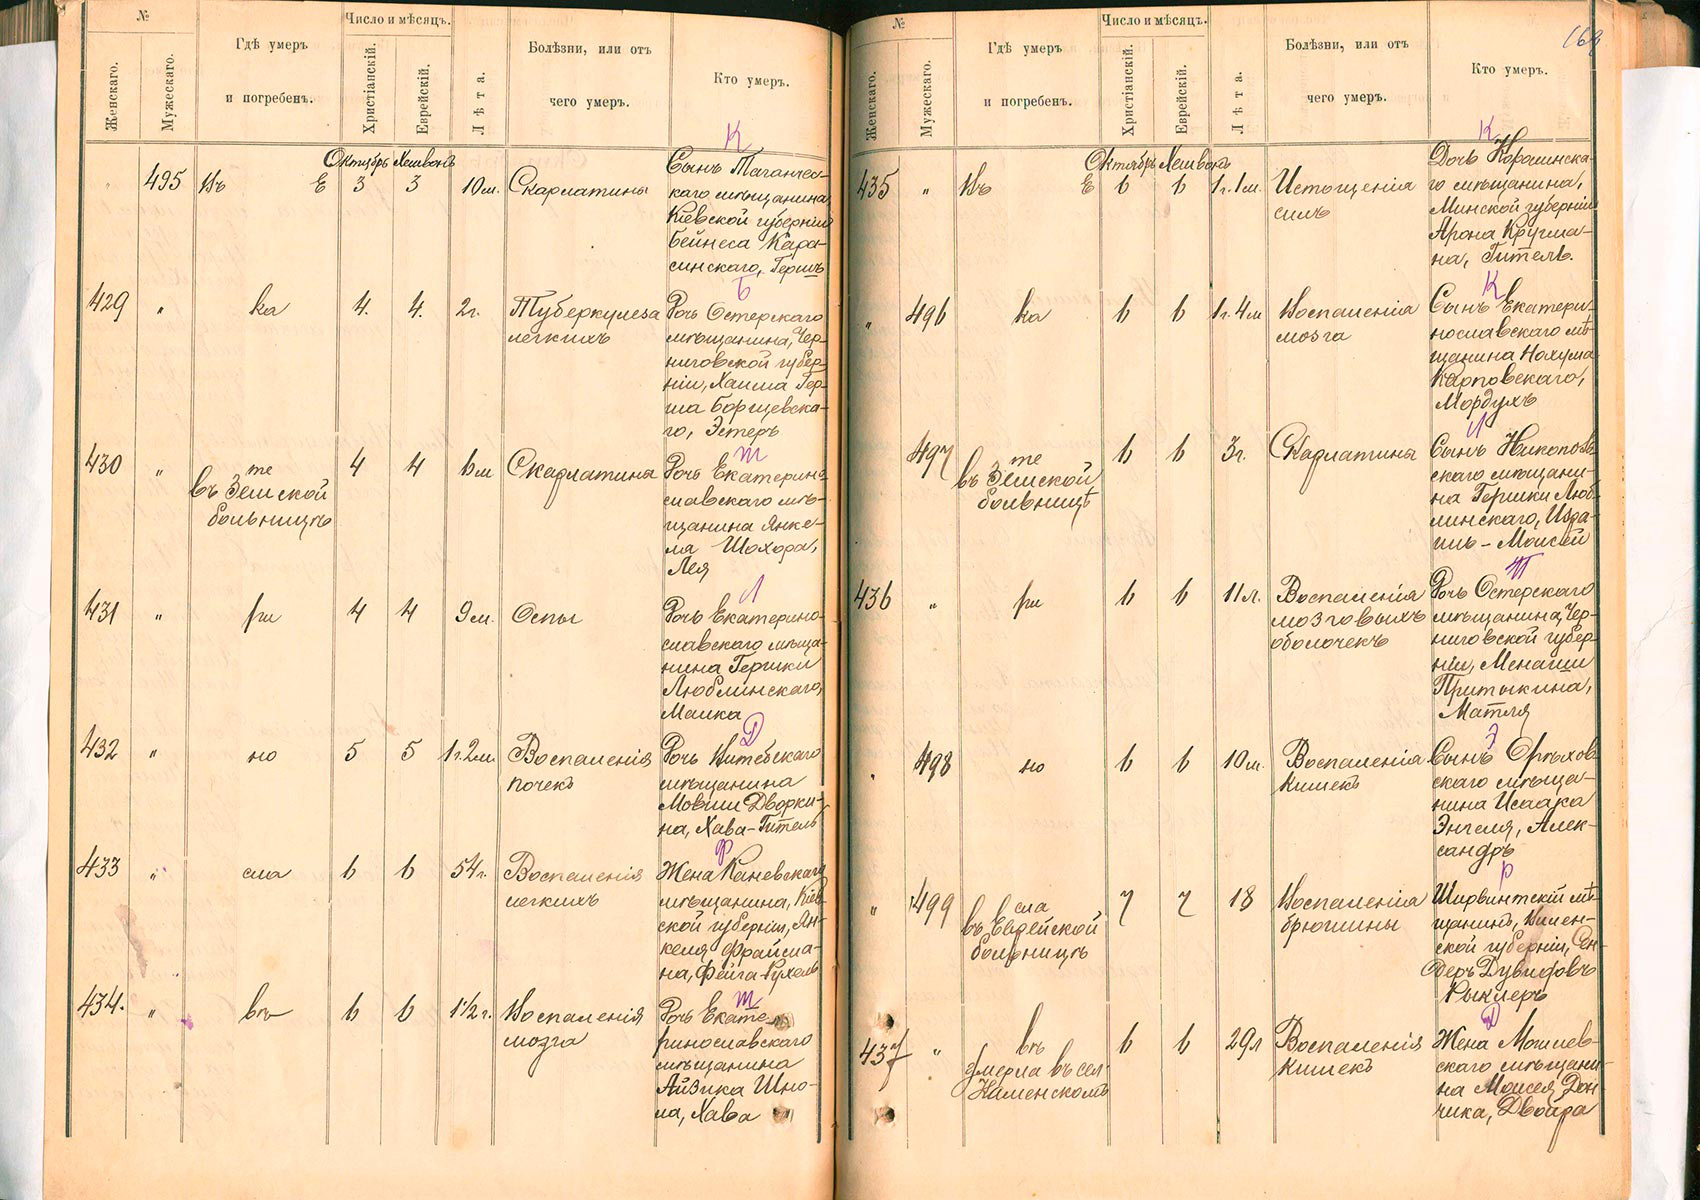 №
Женскаго.
Мужескаго.
Гдѣ умеръ
и погребенъ.
Число и мѣсяцъ.
Христіанскій.
Еврейскій.
Лѣта.
Болѣзни, или отъ
чего умеръ.
Кто умеръ.
К
Октябрь Хешвонъ
495 Въ Е 3 3 10 м. Скарлатины
Сынъ Таганчес-
каго мѣщанина
Кіевской губерніи
Бейнеса Кара-
синскаго, Гершъ
Б
429 " ка 4. 4. 2 г. Туберкулеза
легкихъ
Дочь Остерскаго
мѣщанина, Чер-
ниговской губер-
ніи, Хаима Гер-
ша Борщевска-
го, Эстеръ
Ш
430 " те 4 4 6 м Скарлатина
въ Земской
больницѣ
Дочь Екатерино-
славскаго мѣ-
щанина Янке-
ля Шохора,
Лея
Л
431 " ри 4 4 9 м. Оспы
Дочь Екатерино-
славскаго мѣща-
нина Гершки
Люблинскаго,
Малка
Д
432 " но 5 5 1 г. 2 м. Воспаленія
почекъ
Дочь Витебскаго
мѣщанина
Мовши Дворки-
на, Хава-Гитель
Ф
433 " сла 6 6 54 г. Воспаленія
легкихъ
Жена Каневскаго
мѣщанина, Кіев-
ской губерніи, Ян-
келя Фрайма-
на, Фейга-Рухель
Ш
434. " въ 6 6 1 1/2 г. Воспаленія
мозга
Дочь Екате-
ринославскаго
мѣщанина
Айзика Шно-
ла, Хава
168
№
Женскаго.
Мужескаго.
Гдѣ умеръ
и погребенъ.
Число и мѣсяцъ.
Христіанскій.
Еврейскій.
Лѣта.
Болѣзни, или отъ
чего умеръ.
Кто умеръ.
К
Октябрь Хешвонъ
435 " Въ Е 6 6 1 г. 1 м. Истощенія
силъ
Дочь Королинска-
го мѣщанина,
Минской губерніи
Арона Кругма-
на, Гитель.
К
" 496 ка 6 6 1 г. 4 м Воспаленія
мозга
Сынъ Екатери-
нославскаго мѣ-
щанина Нохума
Карповскаго,
Мордухъ
Л
497 те 6 6 3 г. Скарлатины
въ Земской
больницѣ
Сынъ Никополь-
скаго мѣщани-
на Гершки Люб-
линскаго, Изра-
иль-Моисей
П
436 " ри 6 6 11 л. Воспаленія
мозговыхъ
оболочекъ
Дочь Остерскаго
мѣщанина, Чер-
ниговской губер-
ніи, Менаши
Притыкина,
Матля
Э
" 498 но 6 6 10 м. Воспаленія
кишекъ
Сынъ Орѣхов-
скаго мѣща-
нина Исаака
Энгеля, Алек-
сандръ
Р
" 499 сла 7 7 18 Воспаленія
въ Еврейской брюшины
больницѣ
Ширвинтскій мѣ-
щанинъ, Вилен-
ской губерніи, Сен-
деръ Дувидовъ
Рыклеръ
Д
437 " въ 6 6 29 л Воспаленія
умерла въ сел. кишекъ
Каменскомъ
Жена Могилев-
скаго мѣщани-
на Моисея Дон-
чика, Двойра